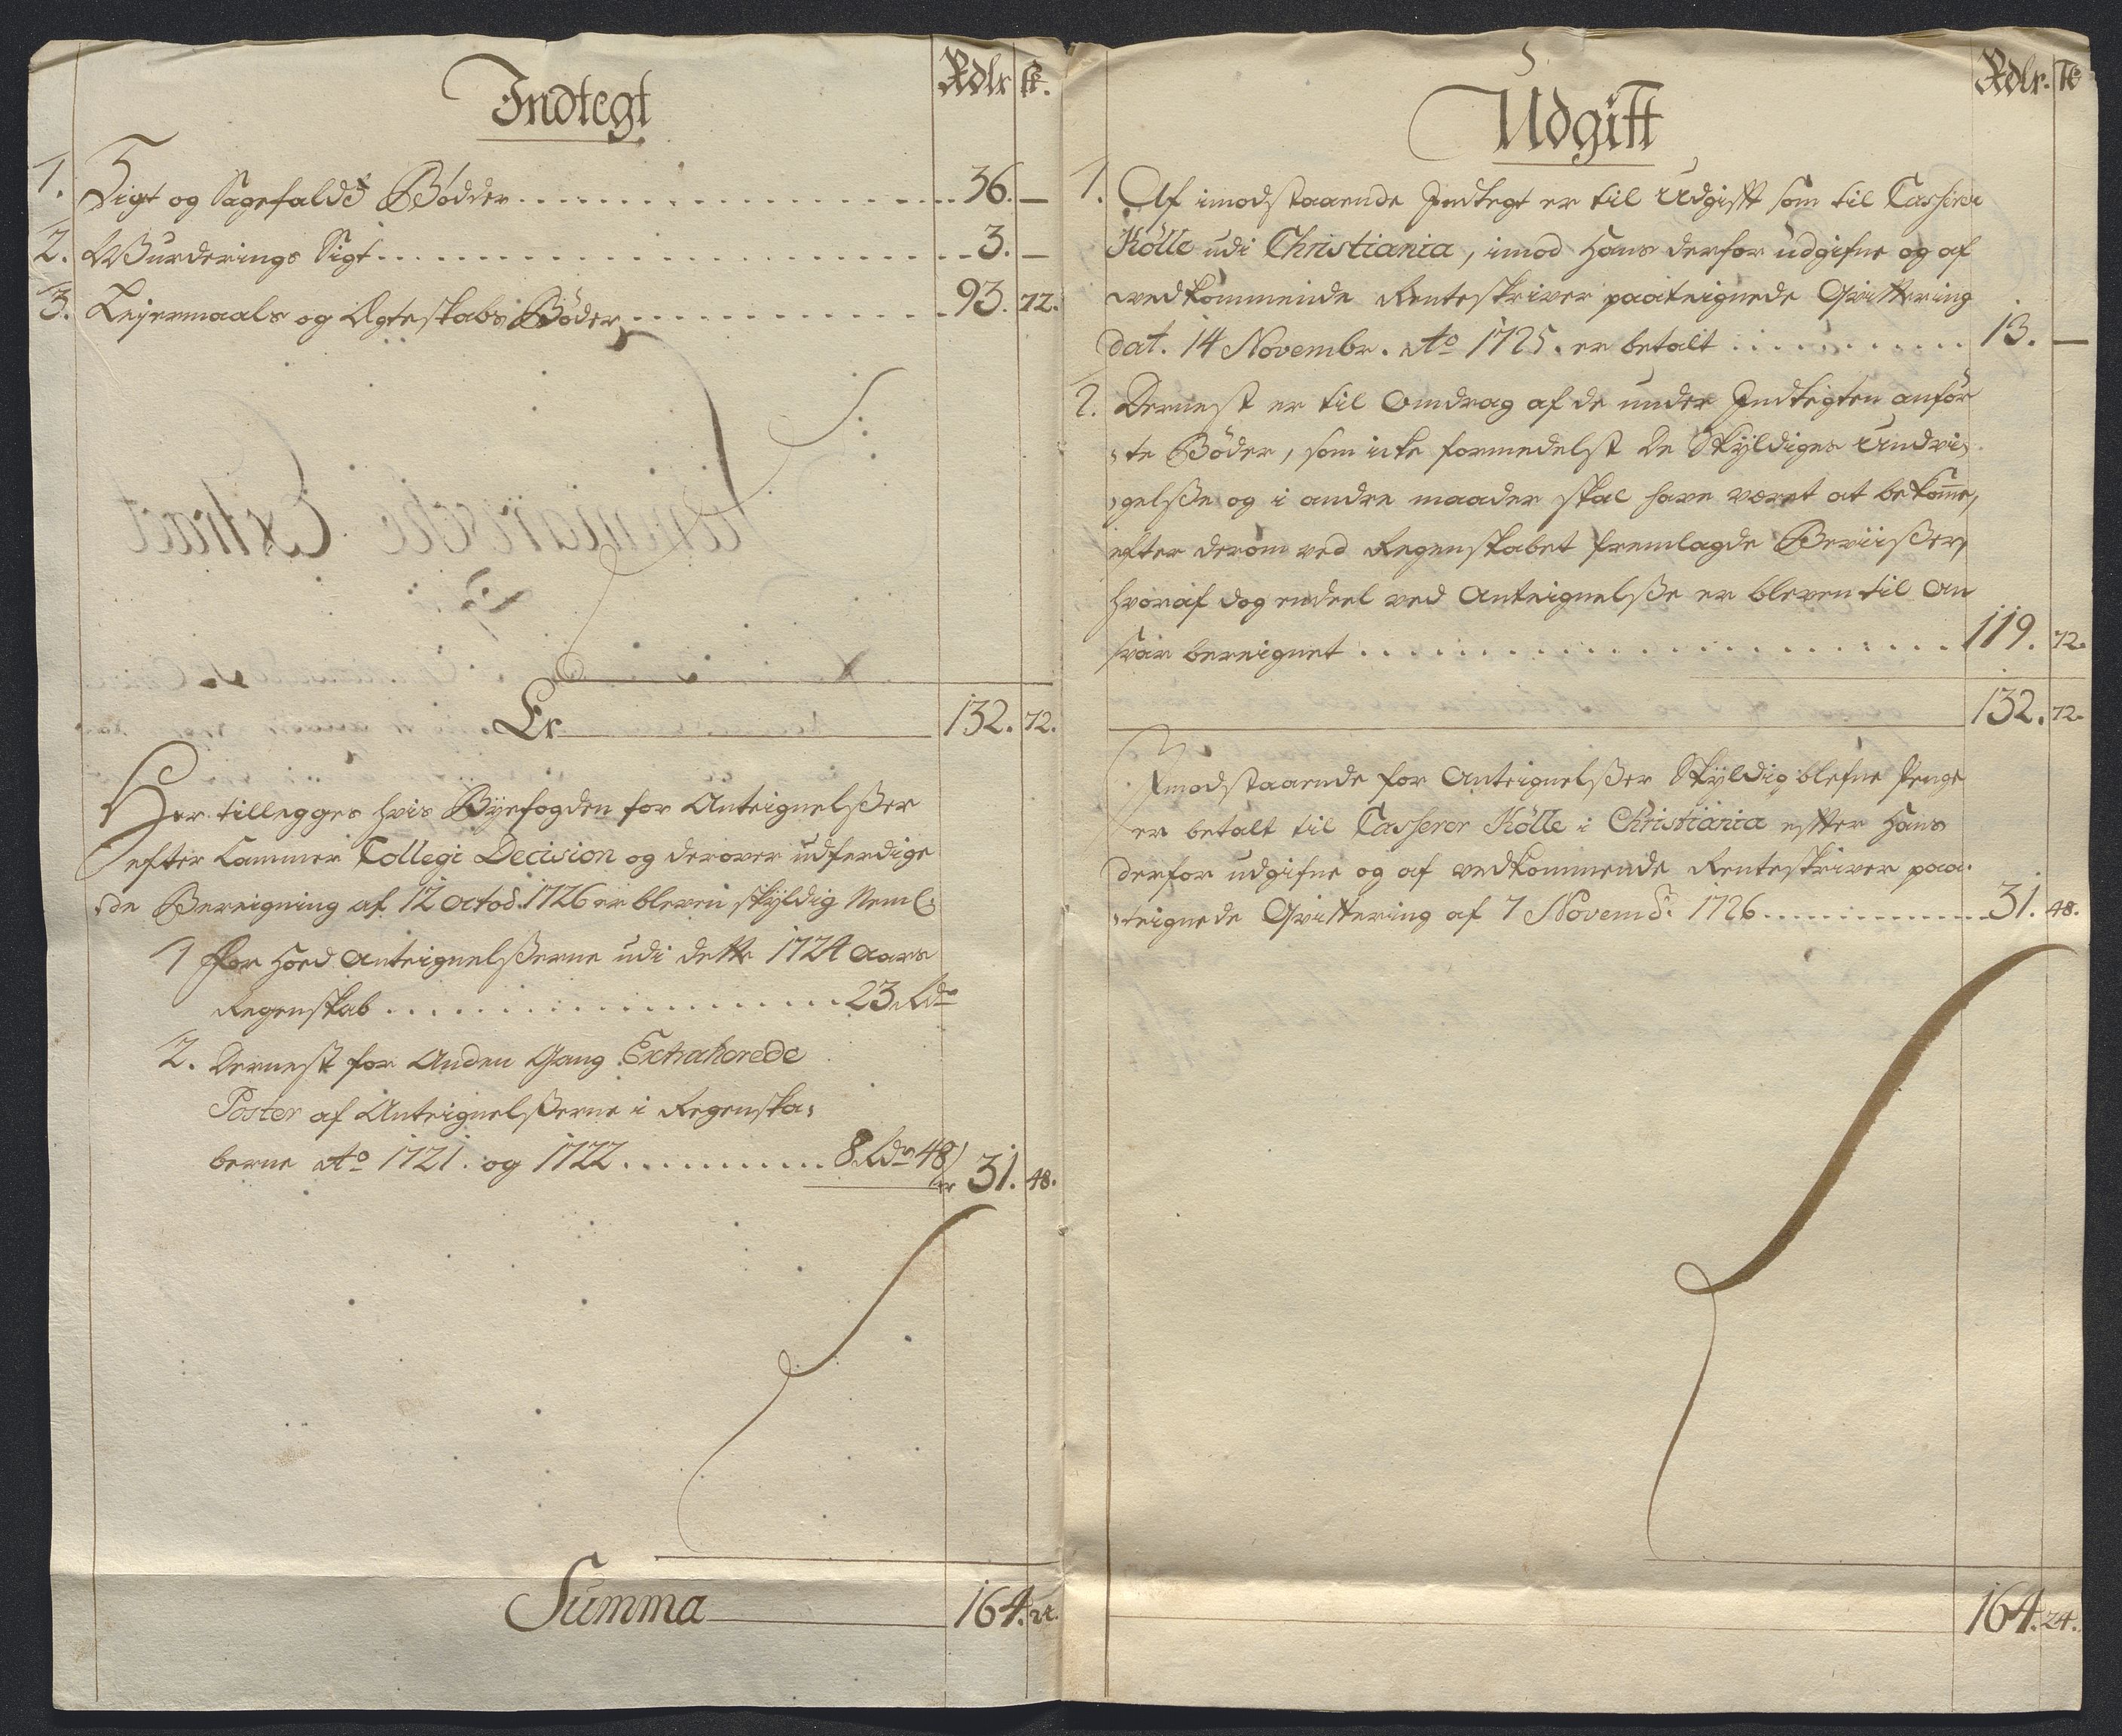 Indtegt
Rdlr ß.
1. Sigt og Sagefalds Bødder 36. —
2. Wurderings Sigt 3. —
3. Leyermaals og Ægteskabs Bøder 93. 72.
Er 132. 72.
Her tillegges hvis Byefogden for Anteignelßer
efter Cammer Collegi Decision og derover udferdige
de Bereigning af 12 Octob. 1726 er bleven skÿldig Neml:
1 For Hoed Anteignelßerne udi dette 1724 Aars
Regenskab 23 Rdr
2. Dernest for Anden Gang Extraherede
Poster af Anteignelßerne i Regenska,
berne Ao 1721. og 1722 8 Rdr 48
er 31. 48.
Summa 164. 24.
Udgift
Rdlr. ß
1. Af imodstaaende Indtegt er til Udgifft som til Casserer
Kölle udi Christiania, imod Hans derfor udgifne og af
vedkommende Renteskriver paateignede Qvittering
dat. 14 Novembr. Ao 1725. er betalt 13. —
2. Dernest er til Omdrag af de under Indtegten anför
te Bøder, som icke formedelst de Skÿldiges Undvi,
gelße og i andre maader skal have været at bekomē,
efter derom ved Regenskabet fremlagde Beviißer,
hvoraf dog endeel ved Anteignelße er bleven til An
svar bereignet 119. 72.
132. 72.
Imodstaaende for Anteignelßer Skÿldig blefne Penge
er betalt til Casserer Kölle i Christiania effter Hans
derfor udgifne og af vedkommende Renteskriver paa
teignede Qvittering af 7 Novemb. 1726 31. 48.
164. 24.